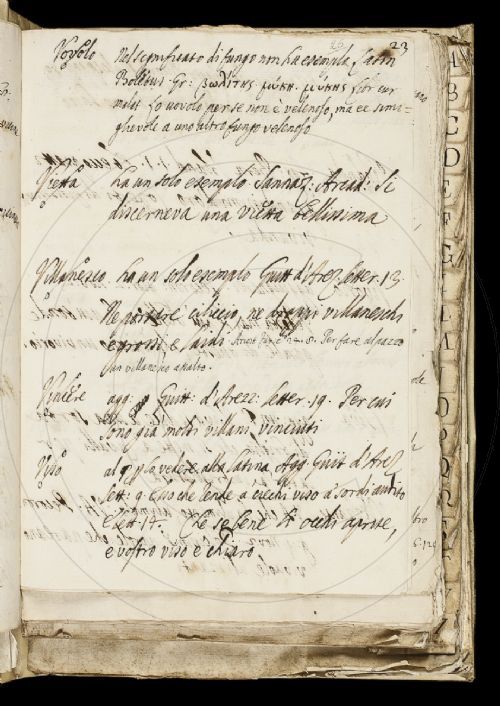 23
Vovolo Nel significato di fungo non ha esempla Latin
Boletus Gr: βωλίτης μύκη. μύκης
Lo uovolo per se non è velenoso, ma è simi-
ghevole a uno altro fungo velenoso
Vietta ha un solo esemplo Sannaz: Arcad: Si
discerneva una vietta bellissima
Villanesco ha un solo esemplo Guitt d'Arez. letter. 13
Ne portare cilicio, ne drappi villaneschi
e grossi e laidi. Per fare al pazzo
un villanesco assalto.
Vincere agg: Guitt: d'Arezz: letter. 19. Per cui
sono già molti villani vinciuti
Viso al la vedere alla latina Agg Guit d'Arez
lett: 9 Esso che rende a ciechi viso a sordi audito
E lett 14. Che se bene gli occhi aprite,
e vostro viso è chiaro.
A
B
C
D
E
F
G